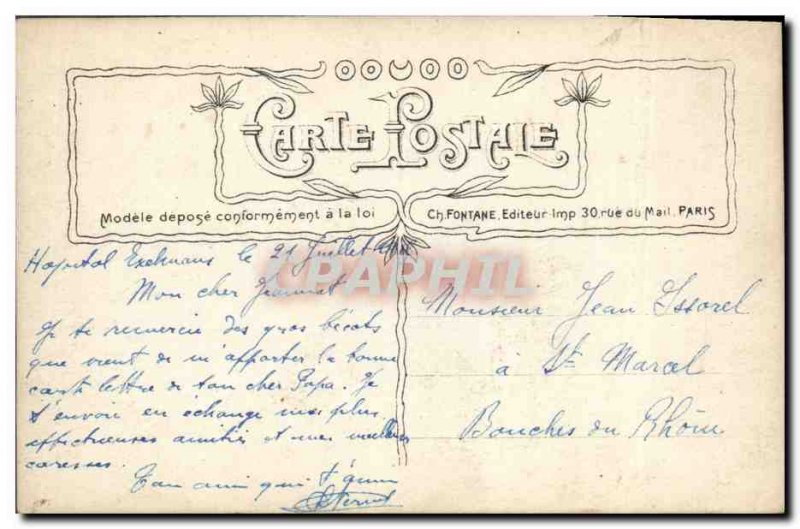 CARTE POSTALE
Modèle déposé conformément à la loi
Ch. FONTANE, Editeur-Imp 30, rue du Mail. PARIS
Hopital Exelmans le 21 Juillet
CAPHIL
Mon cher Jeannot
Je te remercie des gros bécots
que vient de m'apporter la bonne
carte lettre de ton cher Papa. Je
t'envoie en échange mes plus
affectueuses amitiés et mes meilleures
caresses.
Ton ami qui t'aime
Monsieur Jean Issorel
à St Marcel
Bouches du Rhône